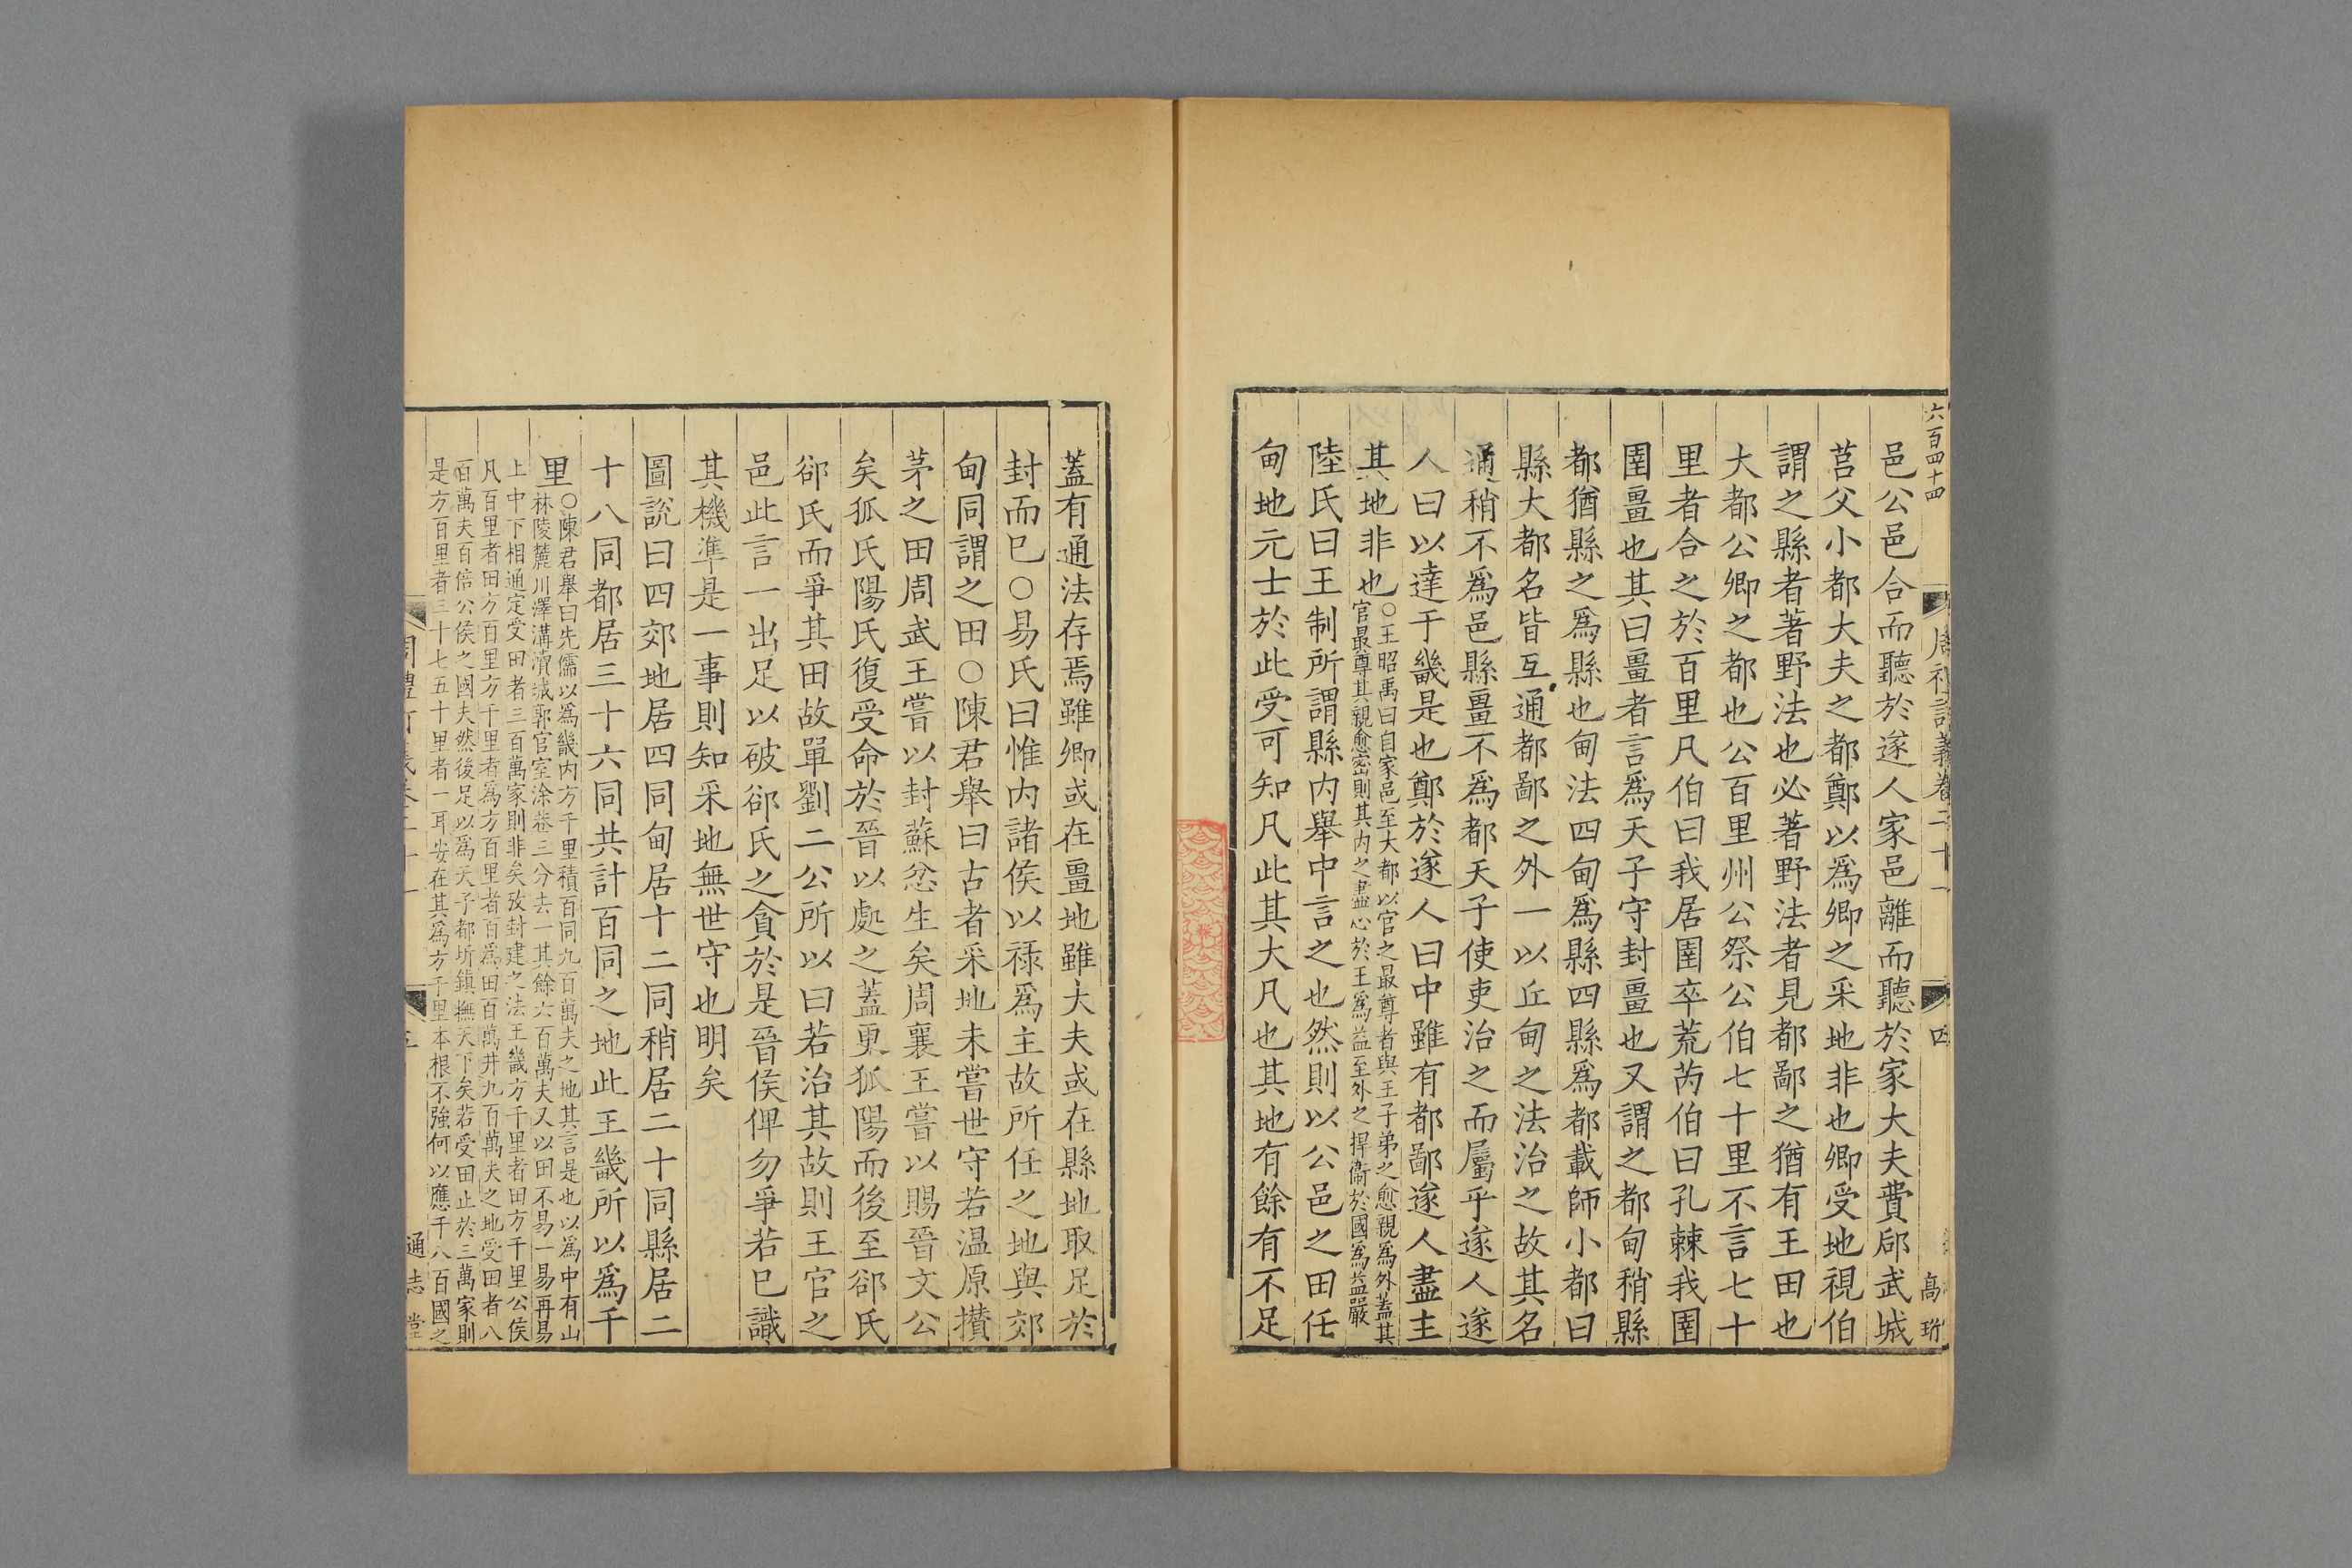 六百四十四
邑公邑合而聽於遂人家邑離而聽於家大夫費郈武城
莒父小都大夫之都鄭以爲卿之采地非也卿受地視伯
謂之縣者著野法也必著野法者見都鄙之猶有王田也
大都公卿之都也公百里州公祭公伯七十里不言七十
里者合之於百里凡伯曰我居圉卒荒芮伯曰孔棘我圉
圉畺也其曰畺者言爲天子守封畺也又謂之都甸稍縣
都猶縣之爲縣也甸法四甸爲縣四縣爲都載師小都曰
縣大都名皆互通都鄙之外一以丘甸之法治之故其名
通稍不爲邑縣畺不爲都天子使吏治之而屬乎遂人遂
人曰以達于畿是也鄭於遂人曰中雖有都鄙遂人盡主
其地非也
○王昭禹曰自家邑至大都以官之最尊者與王子弟之愈親爲外蓋其
官最尊其親愈密則其内之盡心於王爲益至外之捍衞於國爲益嚴
陸氏曰王制所謂縣内舉中言之也然則以公邑之田任
甸地元士於此受可知凡此其大凡也其地有餘有不足
周禮訂義卷二十一
四
高珩
蓋有通法存焉雖卿或在畺地雖大夫或在縣地取足於
封而巳○易氏曰惟内諸侯以禄爲主故所任之地與郊
甸同謂之田○陳君舉曰古者采地未嘗世守若温原攅
茅之田周武王嘗以封蘇忿生矣周襄王嘗以賜晉文公
矣狐氏陽氏復受命於晉以處之蓋更狐陽而後至郤氏
郤氏而爭其田故單劉二公所以曰若治其故則王官之
邑此言一出足以破郤氏之貪於是晉侯俾勿爭若巳識
其機準是一事則知采地無世守也明矣
圖說曰四郊地居四同甸居十二同稍居二十同縣居二
十八同都居三十六同共計百同之地此王畿所以爲千
里
○陳君舉曰先儒以爲畿内方千里積百同九百萬夫之地其言是也以爲中有山
林陵麓川澤溝瀆城郭官室涂巷三分去一其餘六百萬夫又以田不易一易再易
上中下相通定受田者三百萬家則非矣攷封建之法王畿方千里者田方千里公侯
凡百里者田方百里方千里者爲方百里者百爲田百萬井九百萬夫之地受田者八
百萬夫百倍公侯之國夫然後足以爲天子都圻鎮撫天下矣若受田止於三萬家則
是方百里者三十七五十里者一耳安在其爲方千里本根不強何以應千八百國之
通志堂